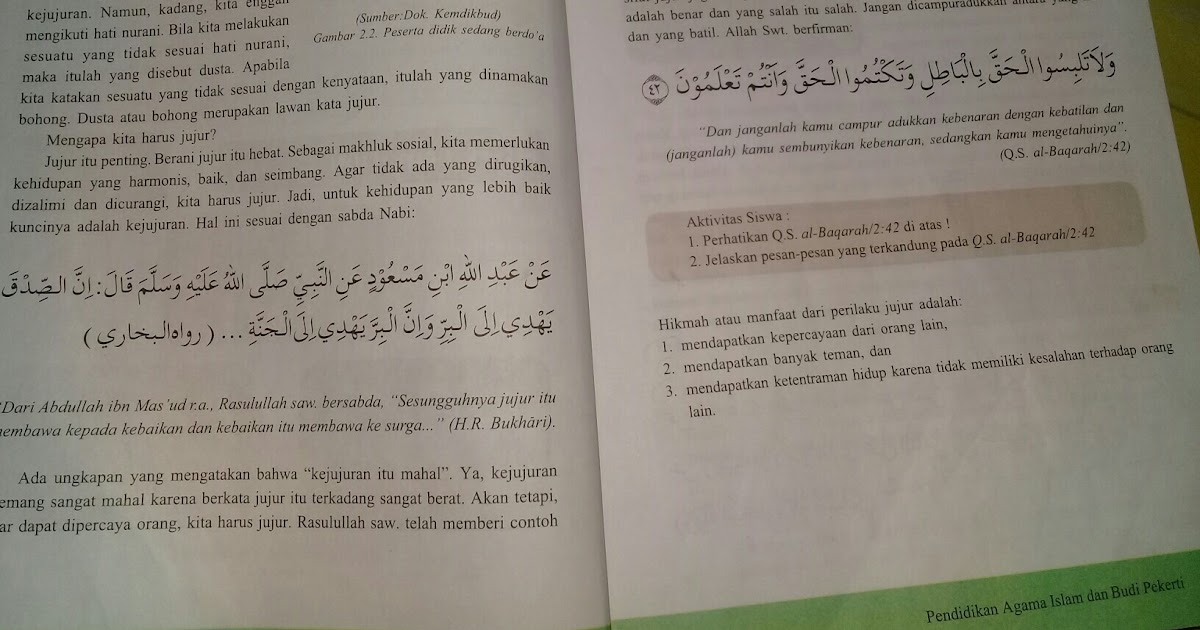 kejujuran. Namun, kadang, kita enggan
mengikuti hati nurani. Bila kita melakukan
sesuatu yang tidak sesuai hati nurani,
maka itulah yang disebut dusta. Apabila
(Sumber:Dok. Kemdikbud)
Gambar 2.2. Peserta didik sedang berdo'a
kita katakan sesuatu yang tidak sesuai dengan kenyataan, itulah yang dinamakan
bohong. Dusta atau bohong merupakan lawan kata jujur.
Mengapa kita harus jujur?
Jujur itu penting. Berani jujur itu hebat. Sebagai makhluk sosial, kita memerlukan
kehidupan yang harmonis, baik, dan seimbang. Agar tidak ada yang dirugikan,
dizalimi dan dicurangi, kita harus jujur. Jadi, untuk kehidupan yang lebih baik
kuncinya adalah kejujuran. Hal ini sesuai dengan sabda Nabi:
عَنْ عَبْدِ اللهِ ابْنِ مَسْعُوْدٍ عَنِ النَّبِيِّ صَلَّى اللهُ عَلَيْهِ وَسَلَّمَ قَالَ: اِنَّ الصِّدْقَ
يَهْدِي اِلَى الْبِرِّ وَاِنَّ الْبِرَّ يَهْدِي اِلَى الْجَنَّةِ ... (رواه البخاري)
"Dari Abdullah ibn Mas'ud r.a., Rasulullah saw. bersabda, "Sesungguhnya jujur itu
membawa kepada kebaikan dan kebaikan itu membawa ke surga..." (H.R. Bukhāri).
Ada ungkapan yang mengatakan bahwa "kejujuran itu mahal". Ya, kejujuran
emang sangat mahal karena berkata jujur itu terkadang sangat berat. Akan tetapi,
ar dapat dipercaya orang, kita harus jujur. Rasulullah saw. telah memberi contoh
adalah benar dan yang salah itu salah. Jangan dicampuradukkan antara yang
dan yang batil. Allah Swt. berfirman:
وَلَا تَلْبِسُوا الْحَقَّ بِالْبَاطِلِ وَتَكْتُمُوا الْحَقَّ وَاَنْتُمْ تَعْلَمُوْنَ ٤٢
"Dan janganlah kamu campur adukkan kebenaran dengan kebatilan dan
(janganlah) kamu sembunyikan kebenaran, sedangkan kamu mengetahuinya".
(Q.S. al-Baqarah/2:42)
Aktivitas Siswa :
1. Perhatikan Q.S. al-Baqarah/2:42 di atas !
2. Jelaskan pesan-pesan yang terkandung pada Q.S. al-Baqarah/2:42
Hikmah atau manfaat dari perilaku jujur adalah:
1. mendapatkan kepercayaan dari orang lain,
2. mendapatkan banyak teman, dan
3. mendapatkan ketentraman hidup karena tidak memiliki kesalahan terhadap orang
lain.
Pendidikan Agama Islam dan Budi Pekerti